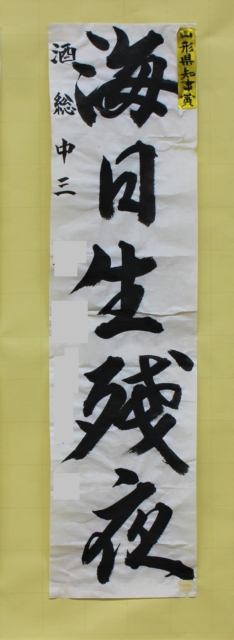 山形県知事賞
海日生残夜
酒総中三